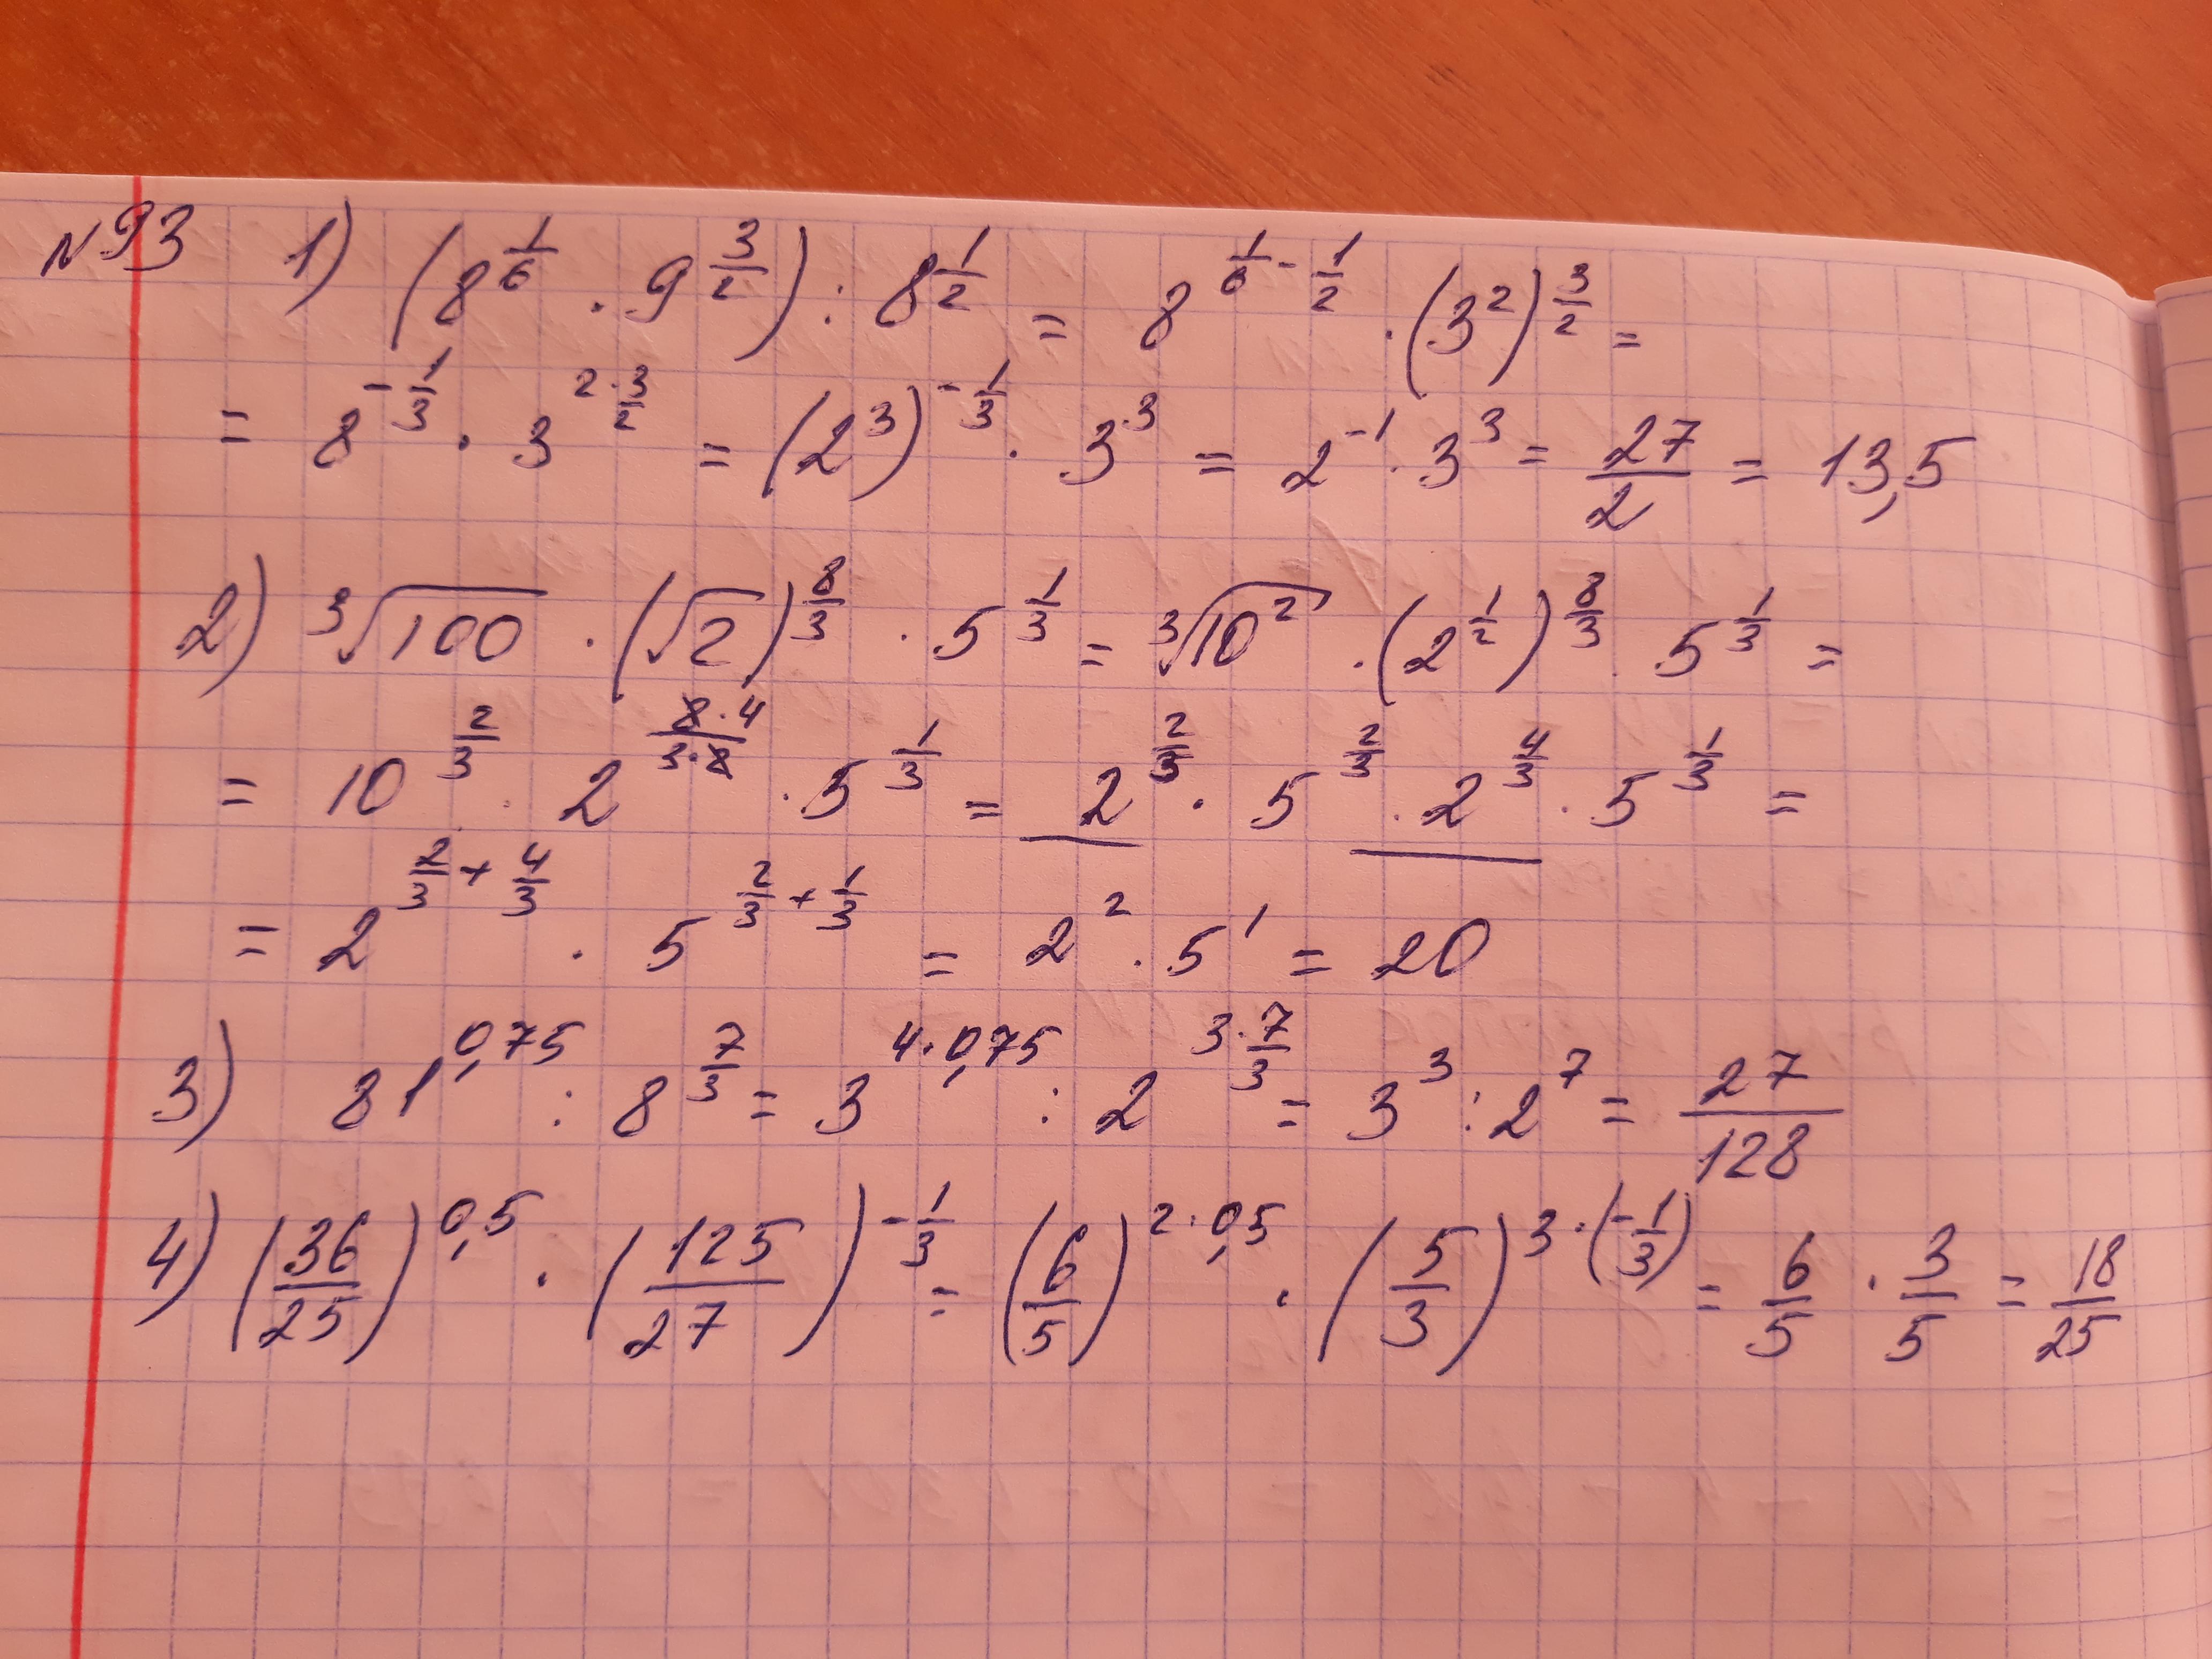 №93 1) (8^{1/6} · 9^{3/2}) : 8^{1/2} = 8^{1/6 - 1/2} · (3^2)^{3/2} =
= 8^{-1/3} · 3^{2·3/2} = (2^3)^{-1/3} · 3^3 = 2^{-1} · 3^3 = 27/2 = 13,5
2) ∛100 · (√2)^{8/3} · 5^{1/3} = ∛10^2 · (2^{1/2})^{8/3} · 5^{1/3} =
= 10^{2/3} · 2^{8·4/3·2} · 5^{1/3} = 2^{2/3} · 5^{2/3} · 2^{4/3} · 5^{1/3} =
= 2^{2/3 + 4/3} · 5^{2/3 + 1/3} = 2^2 · 5^1 = 20
3) 81^{0,75} : 8^{7/3} = 3^{4·0,75} : 2^{3·7/3} = 3^3 : 2^7 = 27/128
4) (36/25)^{0,5} · (125/27)^{-1/3} = (6/5)^{2·0,5} · (5/3)^{3·(-1/3)} = 6/5 · 3/5 = 18/25